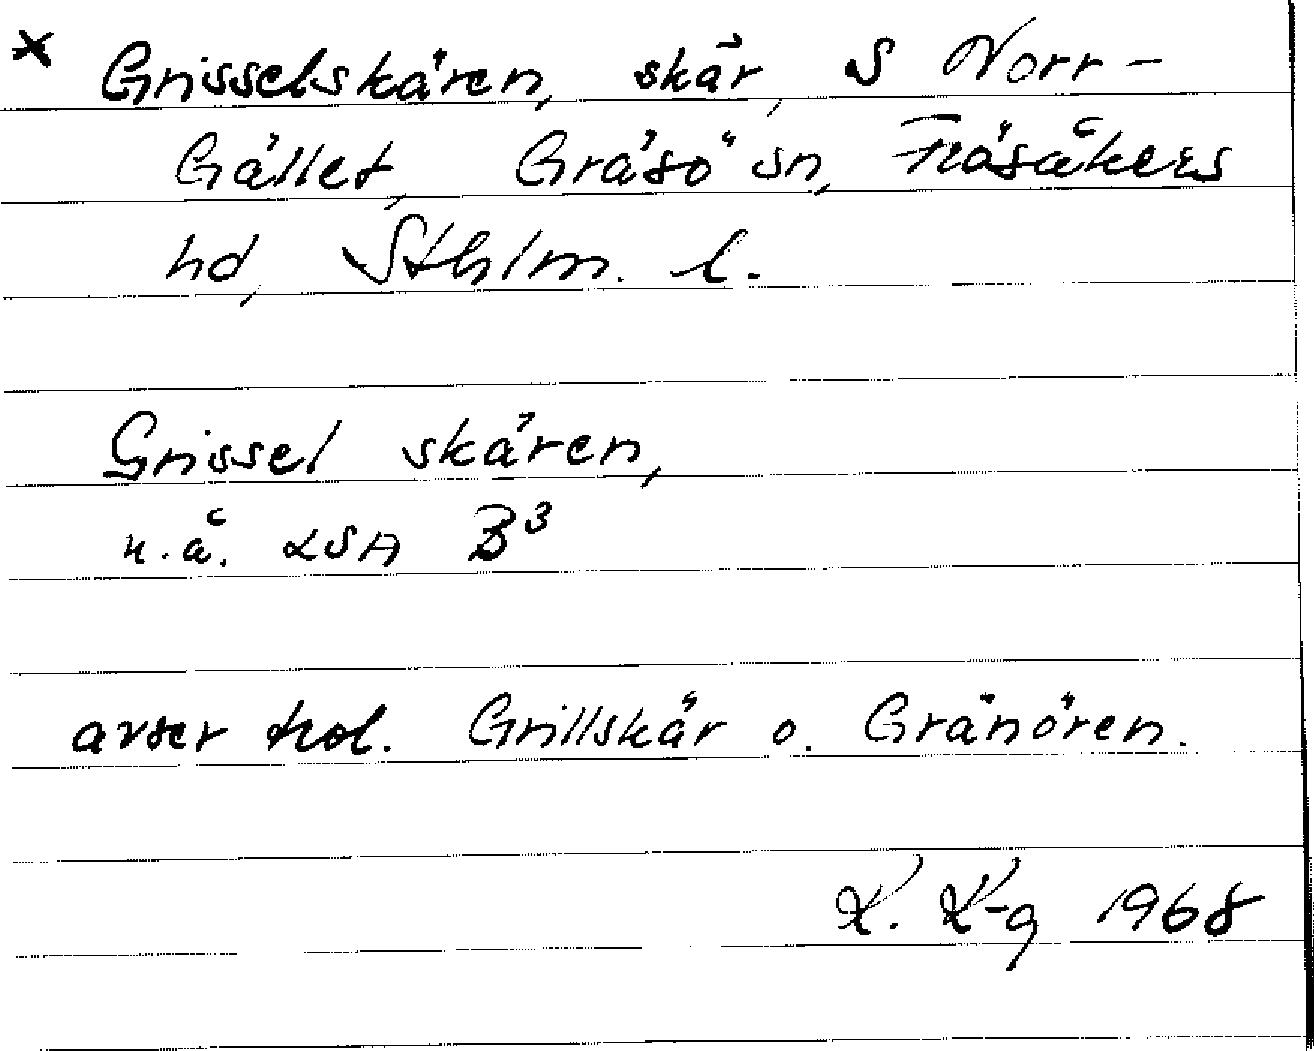 × Grisselskären, skär, S Norr-
Gället, Gräsö sn, Frösåkers
hd, Sthlm. l.
Grissel skären,
u.å. LSA B³
avser trol. Grillskär o. Gränören.
K. K-g 1968